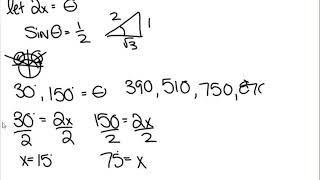 let 2x = θ
Sinθ = 1/2
2
1
√3
30°, 150° = θ
390, 510, 750, 870
30° = 2x
2 2
150° = 2x
2 2
x = 15°
75° = x